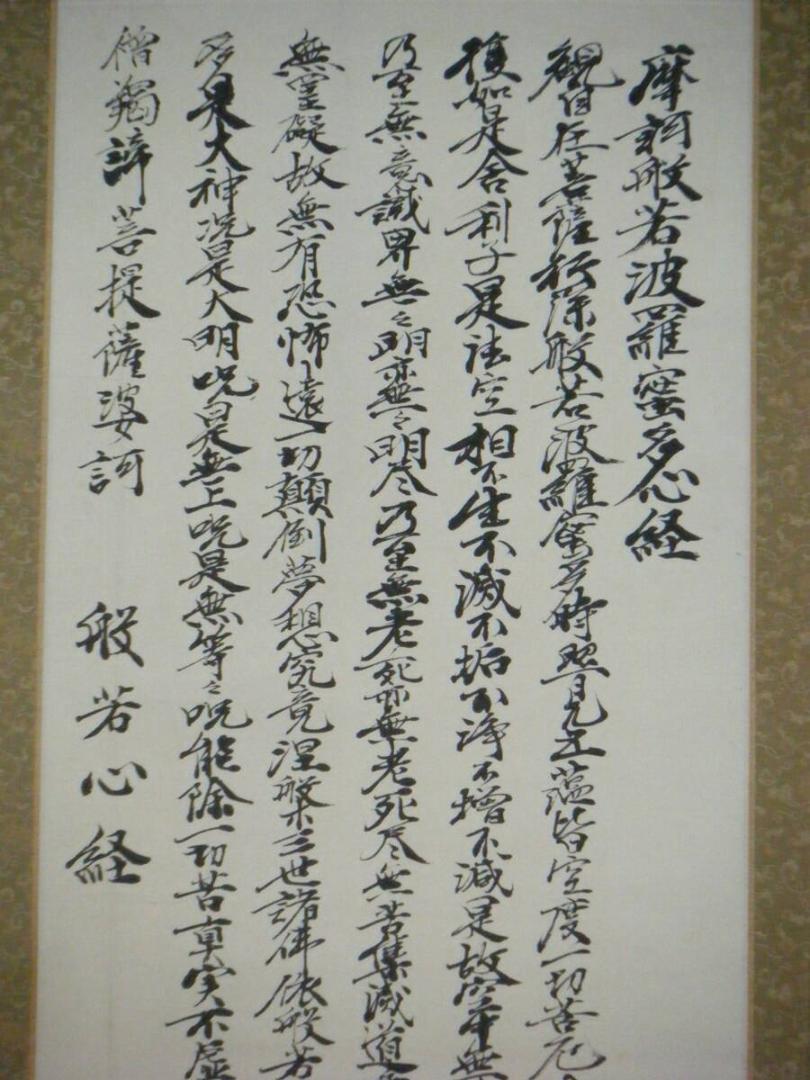 摩訶般若波羅蜜多心経
観自在菩薩行深般若波羅蜜多時照見五蘊皆空度一切苦厄
復如是舎利子是諸法空相不生不滅不垢不浄不増不減是故空中無
乃至無意識界無々明亦無々明尽乃至無老死亦無老死尽無苦集滅道
無罣礙故無有恐怖遠離一切顛倒夢想究竟涅槃三世諸佛依般若
多是大神呪是大明呪是無上呪是無等々呪能除一切苦真実不虚
僧羯諦菩提薩婆訶 般若心経